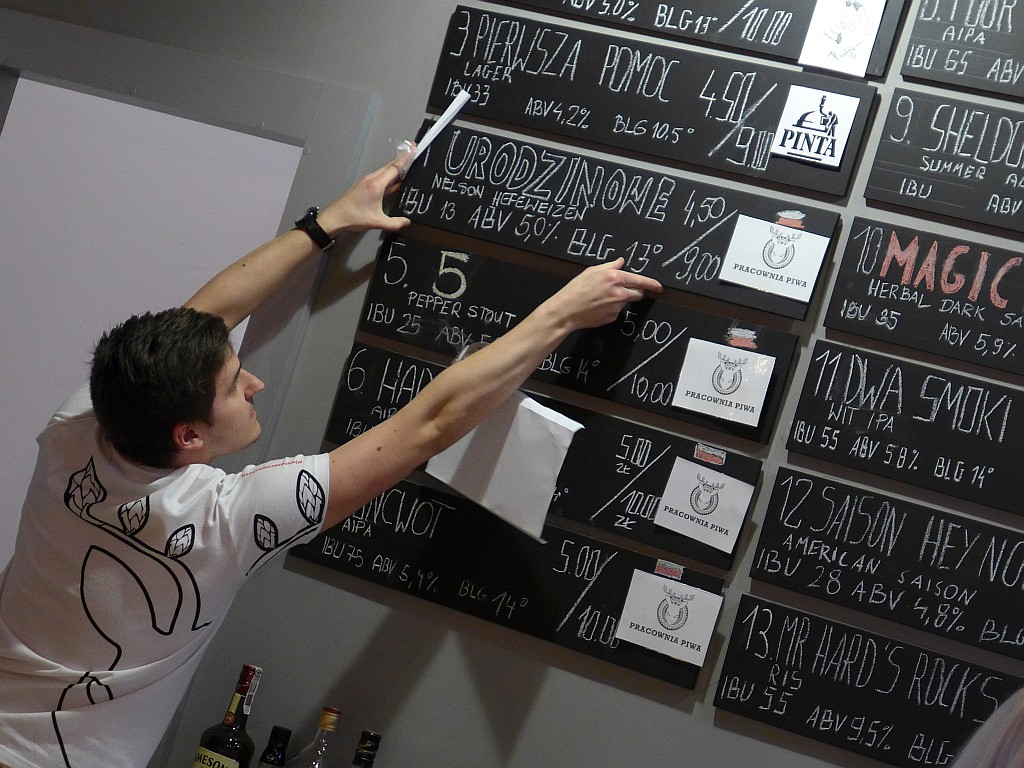 ABV 5,0% BLG 13° / 10.00
3 PIERWSZA POMOC 4,50 / 9,00
LAGER
IBU 33 ABV 4,2% BLG 10.5°
PINTA
URODZINOWE 4,50 / 9,00
NELSON HEFEWEIZEN
IBU 13 ABV 5,0% BLG 13°
PRACOWNIA PIWA
5. 5 5,00 / 10,00
PEPPER STOUT
IBU 25 ABV BLG 14°
PRACOWNIA PIWA
6. 5.00 ZŁ / 10.00 ZŁ
PRACOWNIA PIWA
5.00 / 10.0
AIPA
IBU 75 ABV 5,4% BLG 14°
PRACOWNIA PIWA
AIPA
IBU 65 ABV
9.
SUMMER
IBU
10 MAGIC
HERBAL DARK
IBU 35 ABV 5,9%
11 DWA SMOKI
WIT IPA
IBU 55 ABV 5.8% BLG 14°
12. SAISON HEY
AMERICAN SAISON
IBU 28 ABV 4,8% BLG
13. MR HARD'S ROCKS
RIS
IBU 95 ABV 9.5% BLG